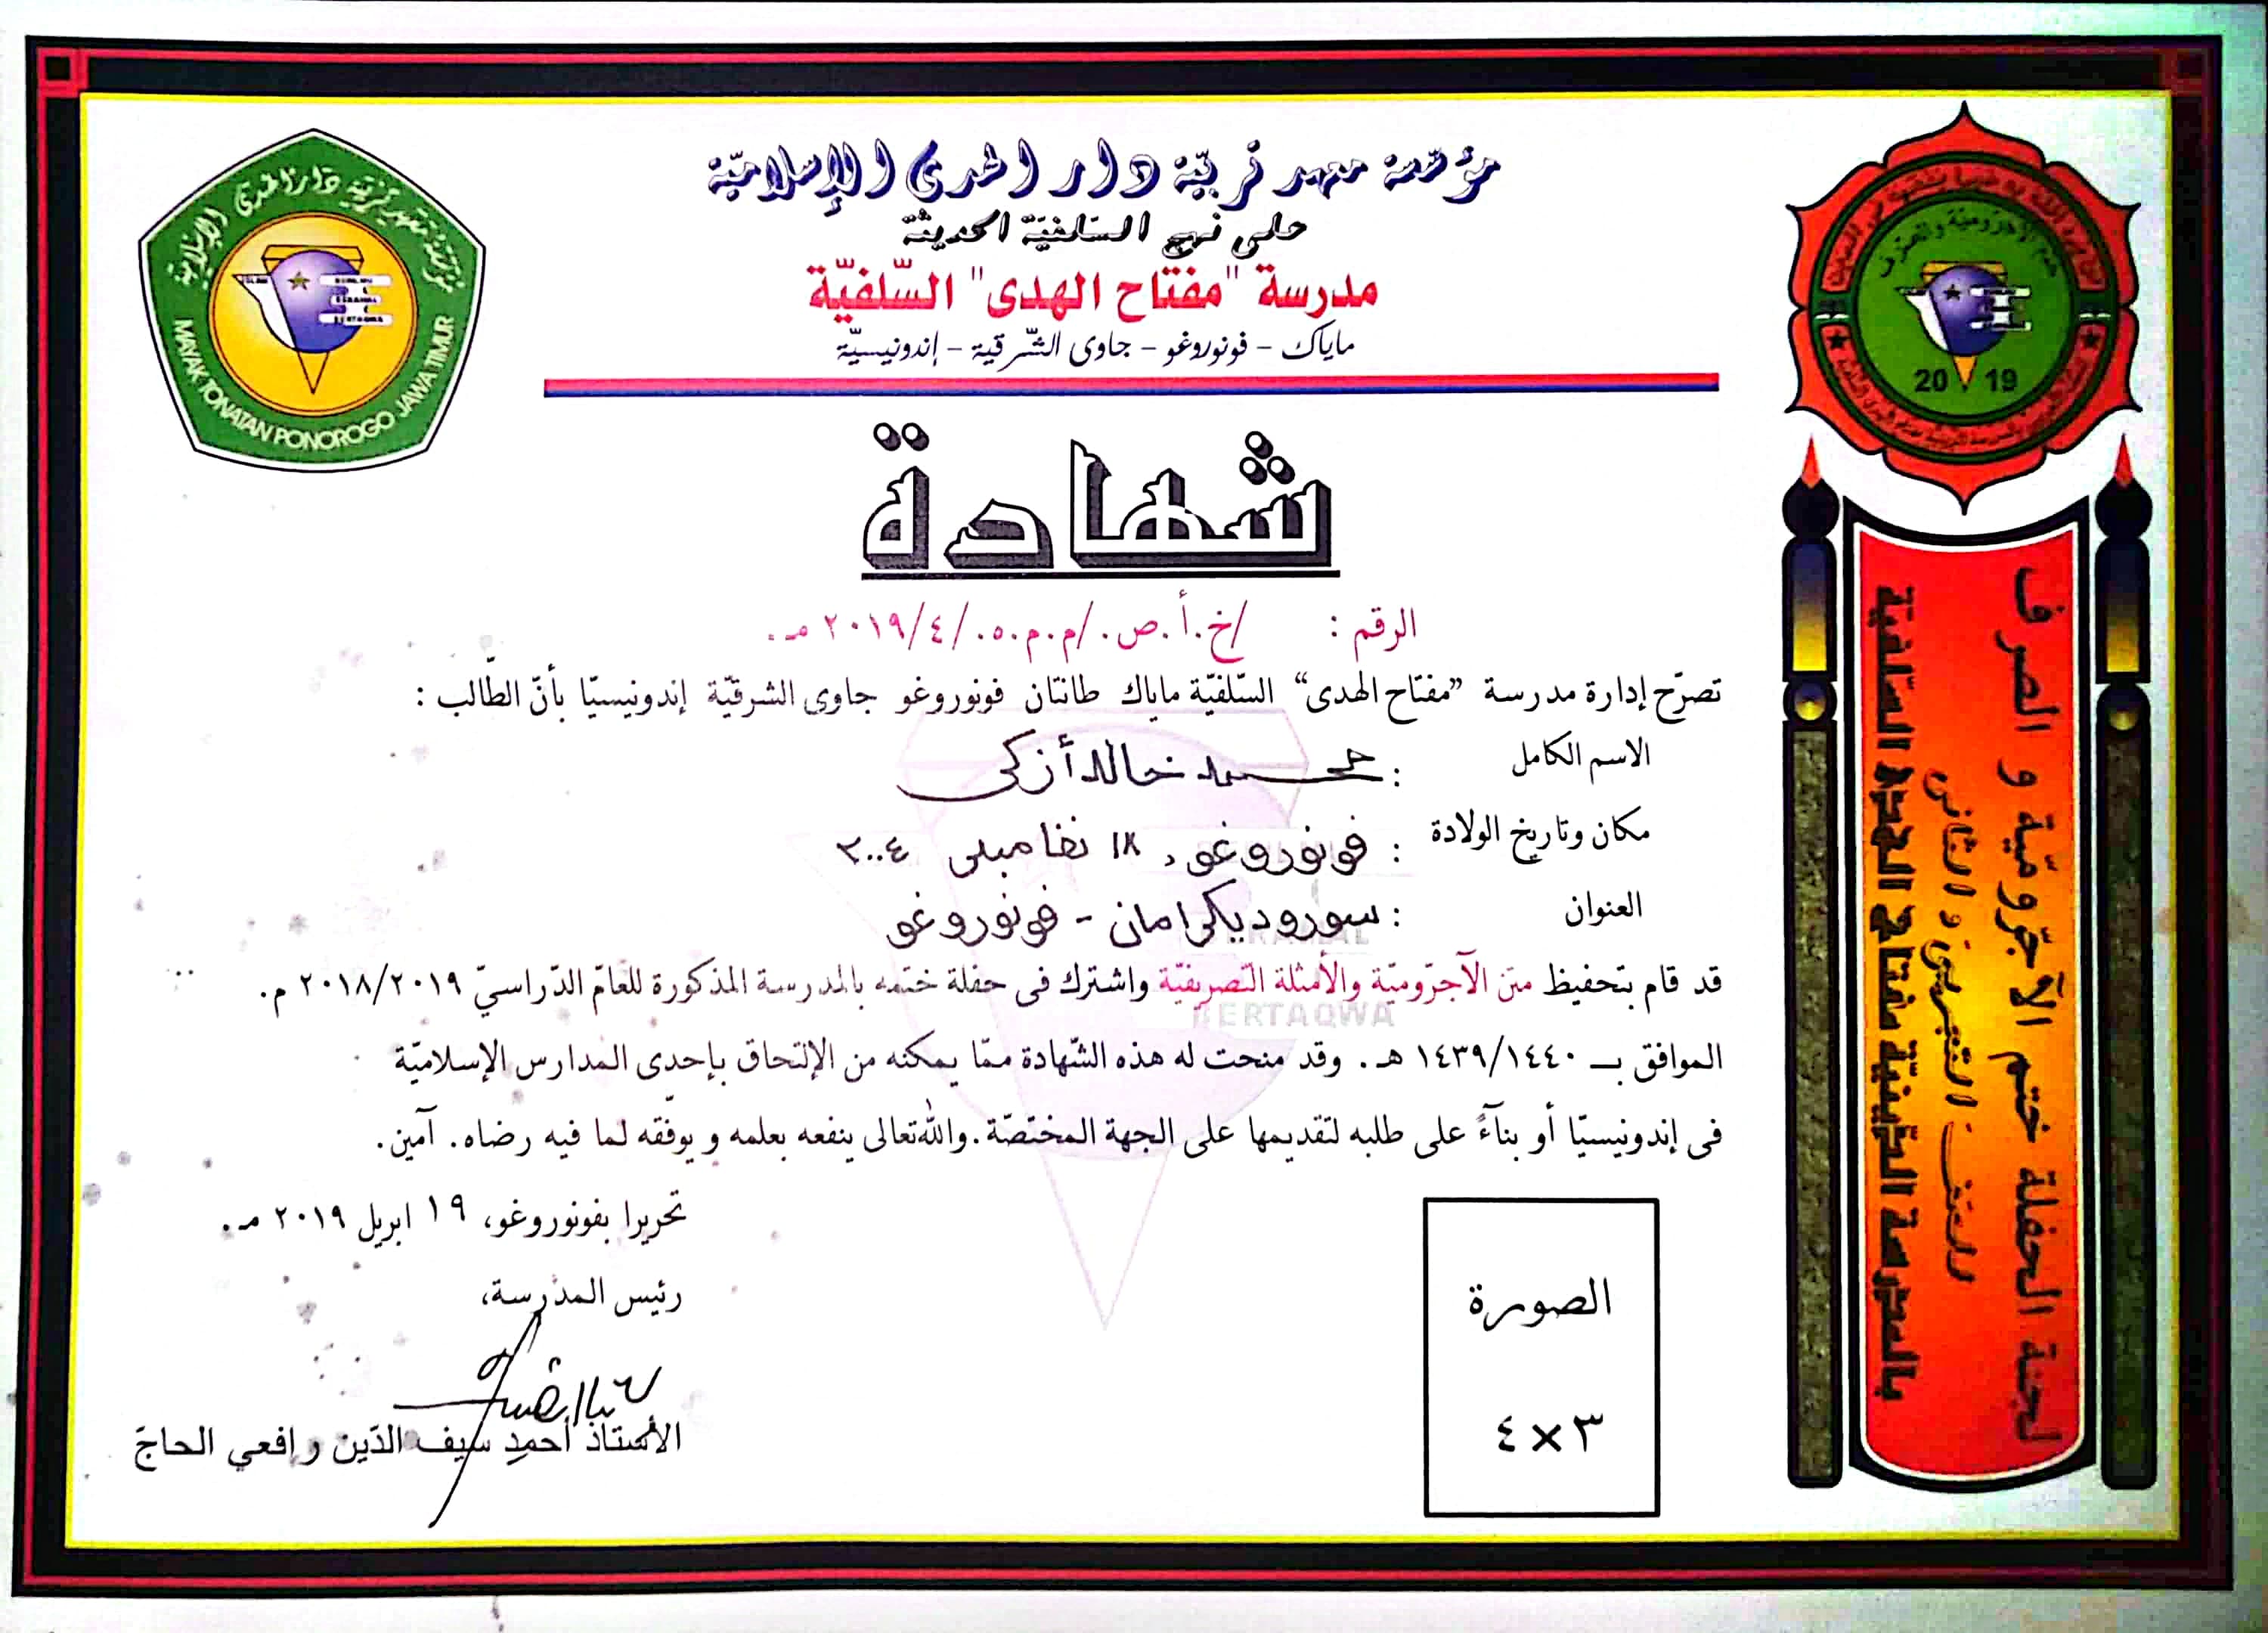 مؤسسة معهد تربيّة دار الهدى الإسلاميّة
على نهج السّلفيّة الحديثة
مدرسة "مفتاح الهدى" السّلفيّة
ماياك - فونوروغو - جاوى الشّرقية - إندونيسيّة
مؤسسة معهد تربية دار الهدى الإسلامية
MAYAK TONATAN PONOROGO JAWA TIMUR
ختم الآجرّوميّة والصّرف
20 19
شهادة
الرقم : /خ.أ.ص./م.م.٥./٢٠١٩/٤ مـ.
تصرّح إدارة مدرسة "مفتاح الهدى" السّلفيّة ماياك طانتان فونوروغو جاوى الشرقيّة إندونيسيّا بأنّ الطّالب :
الاسم الكامل : محمد خالد أزكى
مكان وتاريخ الولادة : فونوروغو، ١٨ نفامبر ٢٠٠٤
العنوان : سوروديكرامان - فونوروغو
قد قام بتحفيظ متن الآجرّوميّة والأمثلة التّصريفيّة واشترك فى حفلة ختمه بالمدرسة المذكورة للعامّ الدّراسيّ ٢٠١٨/٢٠١٩ م.
الموافق بـ ١٤٣٩/١٤٤٠ هـ. وقد منحت له هذه الشّهادة ممّا يمكنه من الإلتحاق بإحدى المدارس الإسلاميّة
فى إندونيسيّا أو بنآءً على طلبه لتقديمها على الجهة المختصّة. والله تعالى ينفعه بعلمه و يوفّقه لما فيه رضاه. آمين.
تحريرا بفونوروغو، ١٩ ابريل ٢٠١٩ مـ.
رئيس المدرسة،
الأستاذ أحمد سيف الدّين رافعي الحاجّ
الصورة
٣×٤
لجنة الحفلة ختم الآجرّوميّة و الصرف
BERTAQWA